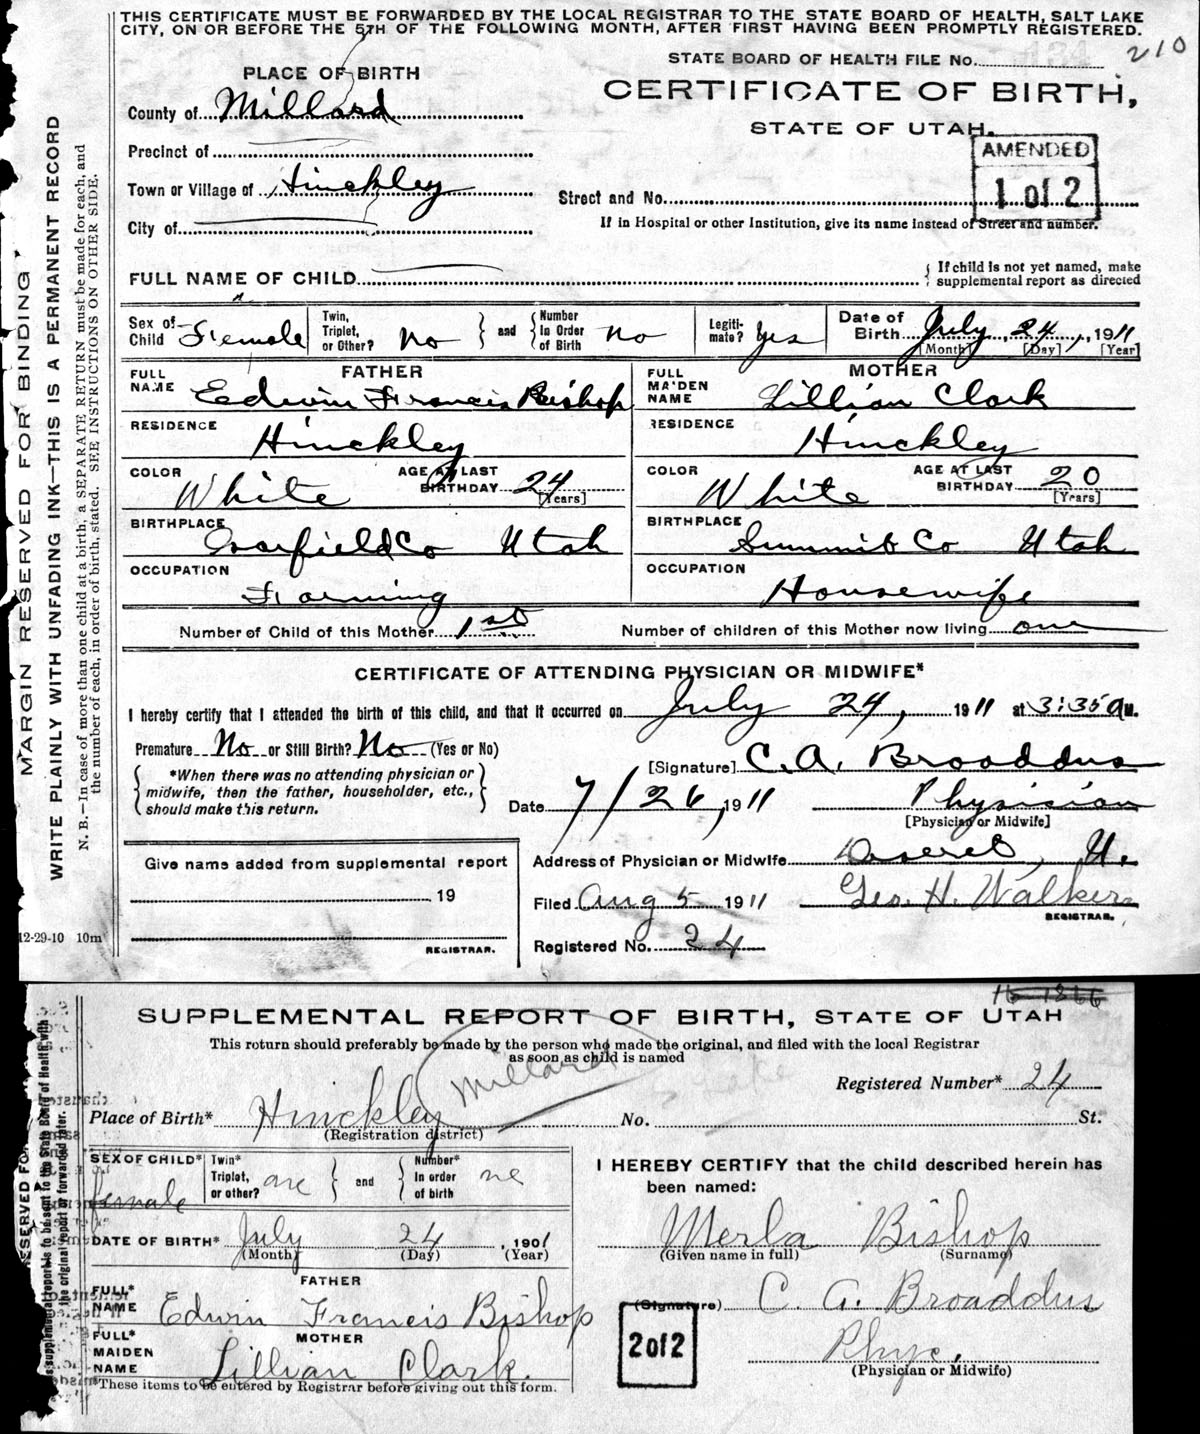 THIS CERTIFICATE MUST BE FORWARDED BY THE LOCAL REGISTRAR TO THE STATE BOARD OF HEALTH, SALT LAKE
CITY, ON OR BEFORE THE 5TH OF THE FOLLOWING MONTH, AFTER FIRST HAVING BEEN PROMPTLY REGISTERED.
210
STATE BOARD OF HEALTH FILE No.
PLACE OF BIRTH
CERTIFICATE OF BIRTH,
STATE OF UTAH.
County of Millard
Precinct of
AMENDED
1 of 2
Town or Village of Hinckley
Street and No.
City of
If in Hospital or other Institution, give its name instead of Street and number.
FULL NAME OF CHILD
If child is not yet named, make
supplemental report as directed
Sex of Child Female
Twin, Triplet, or Other? No
and
Number In Order of Birth no
Legiti-mate? yes
Date of Birth July 24, 1911
[Month] [Day] [Year]
FATHER
FULL NAME Edwin Francis Bishop
RESIDENCE Hinckley
COLOR White AGE AT LAST BIRTHDAY 24 [Years]
BIRTHPLACE Garfield Co Utah
OCCUPATION Farming
MOTHER
FULL MAIDEN NAME Lillian Clark
RESIDENCE Hinckley
COLOR White AGE AT LAST BIRTHDAY 20 [Years]
BIRTHPLACE Summit Co Utah
OCCUPATION Housewife
Number of Child of this Mother 1st Number of children of this Mother now living one
CERTIFICATE OF ATTENDING PHYSICIAN OR MIDWIFE*
I hereby certify that I attended the birth of this child, and that it occurred on July 24, 1911 at 3:35 a M.
Premature No or Still Birth? No (Yes or No)
*When there was no attending physician or
midwife, then the father, householder, etc.,
should make this return.
[Signature] C. A. Broaddus
Date 7/26, 1911 Physician
[Physician or Midwife]
Give name added from supplemental report
19
REGISTRAR.
Address of Physician or Midwife Deseret, U.
Filed Aug 5 1911 Geo. H. Walker
REGISTRAR.
Registered No. 24
MARGIN RESERVED FOR BINDING
WRITE PLAINLY WITH UNFADING INK—THIS IS A PERMANENT RECORD
N. B.—In case of more than one child at a birth, a SEPARATE RETURN must be made for each, and
the number of each, in order of birth, stated. SEE INSTRUCTIONS ON OTHER SIDE.
12-29-10 10m
SUPPLEMENTAL REPORT OF BIRTH, STATE OF UTAH
This return should preferably be made by the person who made the original, and filed with the local Registrar
as soon as child is named
Millard
Registered Number* 24
Place of Birth* Hinckley No. St.
(Registration district)
SEX OF CHILD* female
Twin* Triplet, or other?
and
Number* In order of birth
DATE OF BIRTH* July 24, 1901
(Month) (Day) (Year)
FATHER
FULL* NAME Edwin Francis Bishop
MOTHER
FULL* MAIDEN NAME Lillian Clark.
*These items to be entered by Registrar before giving out this form.
I HEREBY CERTIFY that the child described herein has
been named:
Merla Bishop
(Given name in full) (Surname)
(Signature) C. A. Broaddus
2 of 2
Phys.
(Physician or Midwife)
supplemental report is to be sent to the State Board of Health with
the original report or forwarded later.